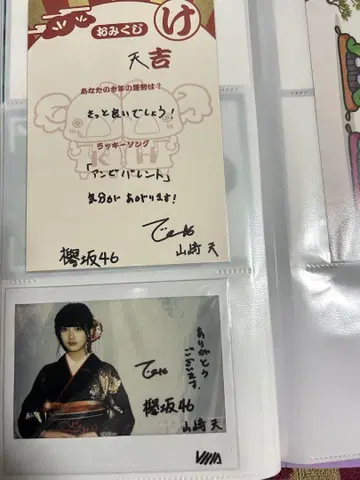 おみくじ
け
天吉
あなたの今年の運勢は？
きっと良いでしょう！
ラッキーソング
「アンビバレント」
気分があがります！
欅坂46
山﨑 天
ありがとう
ございます。
欅坂46
山﨑 天